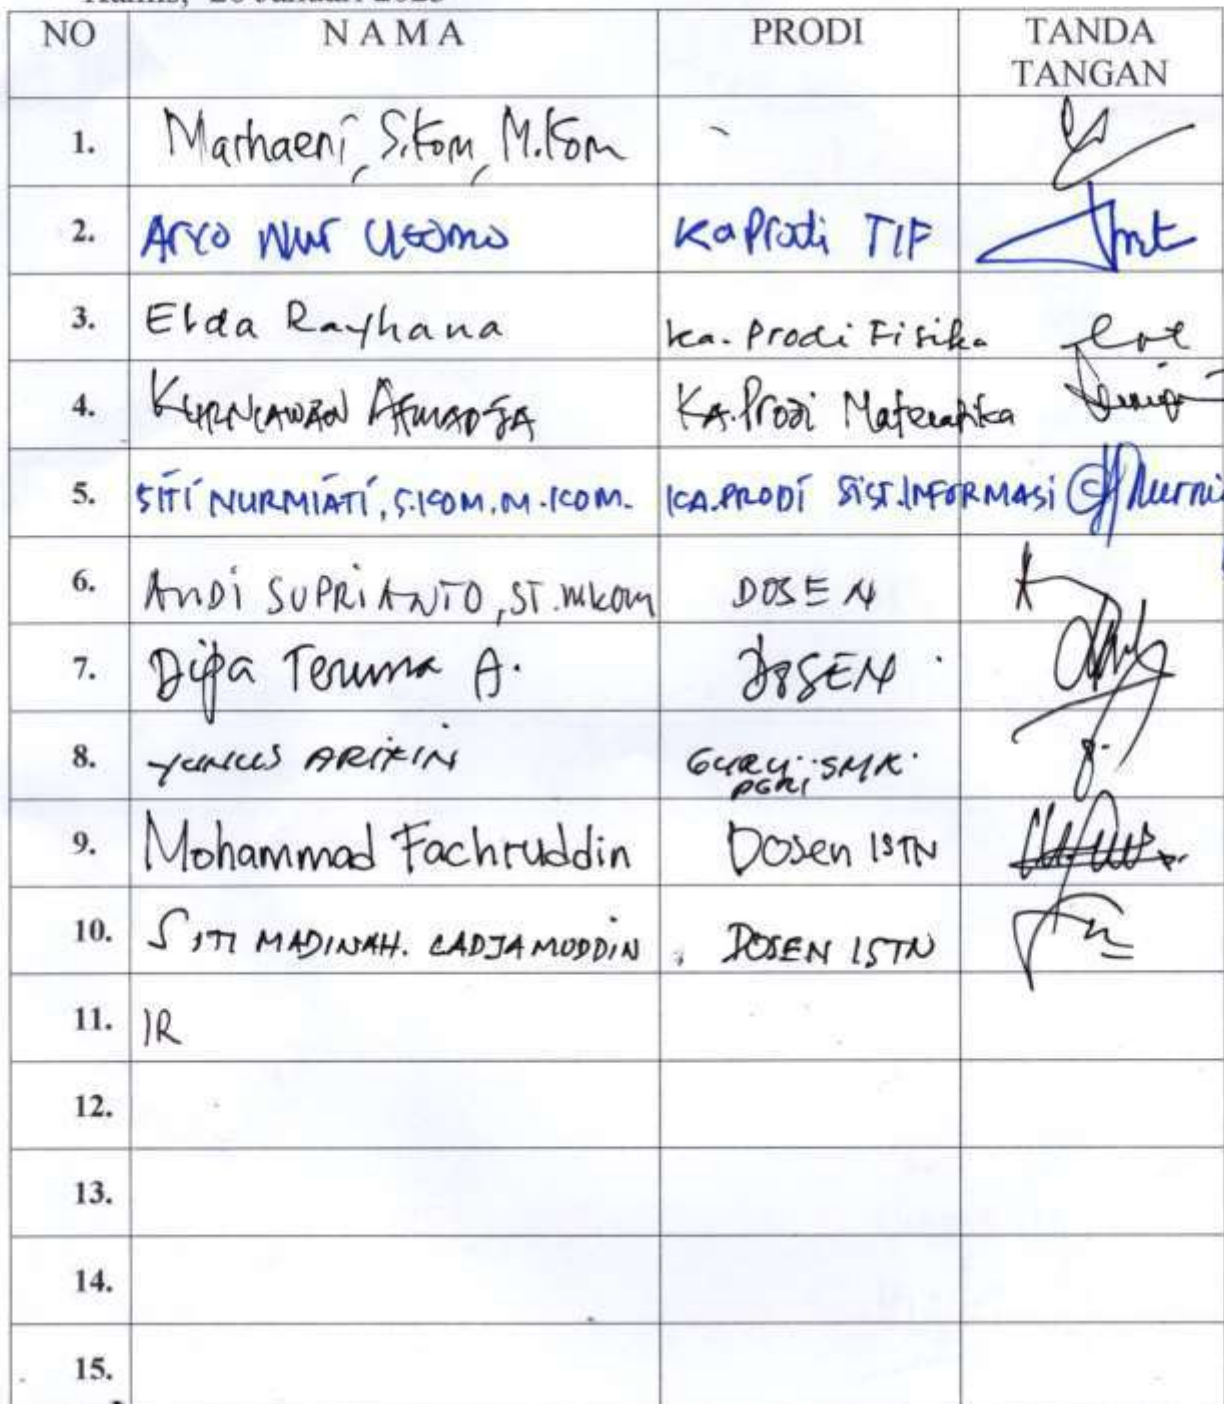 Kamis, 26 Januari 2023
NO NAMA PRODI TANDA TANGAN
1. Marhaeni, S.Kom, M.Kom
2. Aryo Nur Utomo KaProdi TIF
3. Elda Rayhana Ka. Prodi Fisika
4. KURNIAWAN ATMADJA KA.Prodi Matematika
5. SITI NURMIATI, S.KOM. M.KOM. KA.PRODI SIST.INFORMASI
6. ANDI SUPRIANTO, ST. MKom DOSEN
7. Dipa Teruna A. DOSEN
8. YUNUS ARIFIN GURU SMK PGRI
9. Mohammad Fachruddin Dosen ISTN
10. SITI MADINAH. LADJAMUDDIN DOSEN ISTN
11. IR
12.
13.
14.
15.